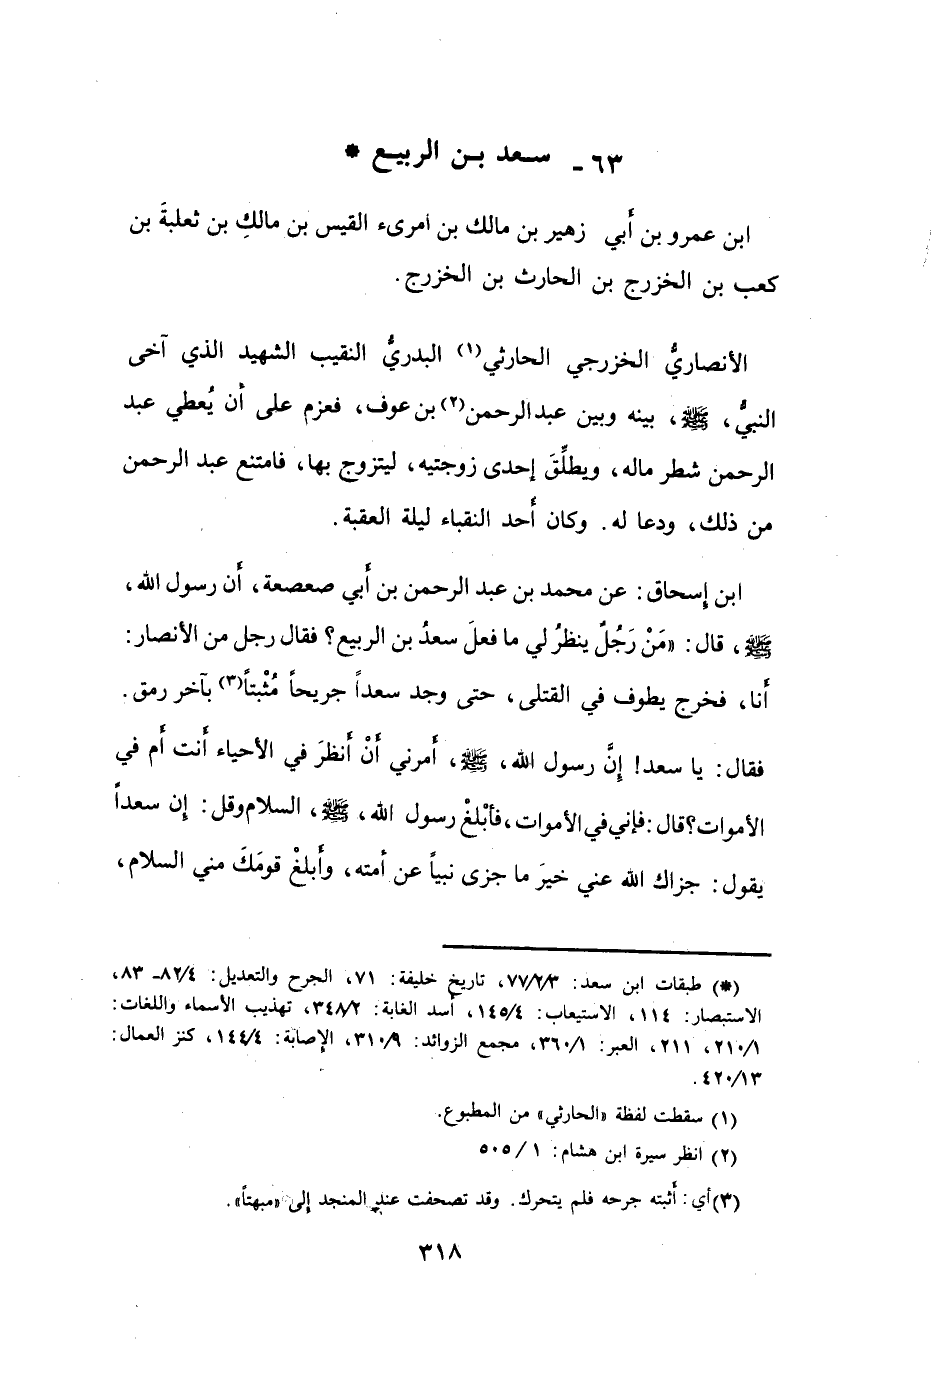 ٦٣ ـ سعد بن الربيع *
ابن عمرو بن أَبي زهير بن مالك بن امرىء القيس بن مالكِ بن ثعلبةَ بن
كعب بن الخزرج بن الحارث بن الخزرج.
الأنصاريُّ الخزرجي الحارثي(١) البدريُّ النقيب الشهيد الذي آخى
النبيُّ، ﷺ، بينه وبين عبدالرحمن(٢) بن عوف، فعزم على أن يُعطي عبد
الرحمن شطر ماله، ويطلِّقَ إحدى زوجتيه، ليتزوج بها، فامتنع عبد الرحمن
من ذلك، ودعا له. وكان أَحد النقباء ليلة العقبة.
ابن إسحاق: عن محمد بن عبد الرحمن بن أَبي صعصعة، أَن رسول الله،
ﷺ، قال: «مَنْ رَجُلٌ ينظرُ لي ما فعلَ سعدُ بن الربيع؟ فقال رجل من الأنصار:
أَنا، فخرج يطوف في القتلى، حتى وجد سعداً جريحاً مُثْبتاً(٣) بآخر رمق.
فقال: يا سعد! إِنَّ رسول الله، ﷺ، أَمرني أَنْ أَنظرَ في الأحياء أَنت أَم في
الأموات؟ قال: فإني في الأموات، فأَبْلغْ رسول الله، ﷺ، السلام وقل: إن سعداً
يقول: جزاك الله عني خيرَ ما جزى نبياً عن أمته، وأَبلغْ قومَكَ مني السلام،
(*) طبقات ابن سعد: ٧٧/٢/٣، تاريخ خليفة: ٧١، الجرح والتعديل: ٨٢/٤ـ ٨٣،
الاستبصار: ١١٤، الاستيعاب: ١٤٥/٤، أسد الغابة: ٣٤٨/٢، تهذيب الأسماء واللغات:
٢١٠/١، ٢١١، العبر: ٣٦٠/١، مجمع الزوائد: ٣١٠/٩، الإصابة: ١٤٤/٤، كنز العمال:
٤٢٠/١٣.
(١) سقطت لفظة «الحارثي» من المطبوع.
(٢) انظر سيرة ابن هشام: ١ / ٥٠٥
(٣) أي: أَثبته جرحه فلم يتحرك. وقد تصحفت عند المنجد إلى «مبهتاً».
٣١٨